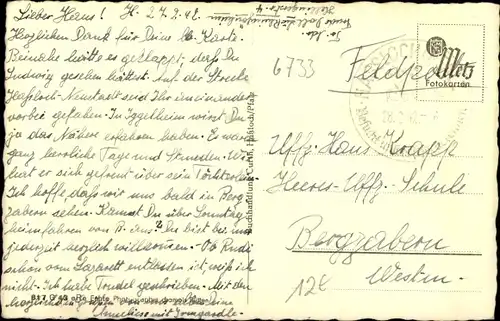 Lieber Hans! H. 27.9.42.
Herzlichen Dank für Deine lb. Karte.
Beinahe hätte es geklappt, daß Du
Ludwig gesehen hättest. Auf der Strecke
Haßloch-Neustadt seid Ihr aneinander
vorbei gefahren. In Iggelheim wirst Du
ja das Nähere erfahren haben. Es waren
ganz herrliche Tage und Stunden. Wie
hat er sich gefreut über sein Töchterlein.
Ich hoffe, daß wir uns bald in Berg-
zabern sehen. Kannst Du über Sonntag
heimfahren von B. aus? Du bist bei uns
jederzeit herzlich willkommen. Ob Rudi
schon vom Lazarett entlassen ist, weiß ich
nicht. Ich habe Trudel geschrieben. Mit den
herzlichsten
Anneliese mit Irmgardle.
817 G 43 Echte
Buchhandlung Curth, Haßloch/Pfalz
6733
Feldpost
Metz
Fotokarten
Uffz. Hans Krapp
Heeres-Uffz.-Schule
Bergzabern
12€
Westm.